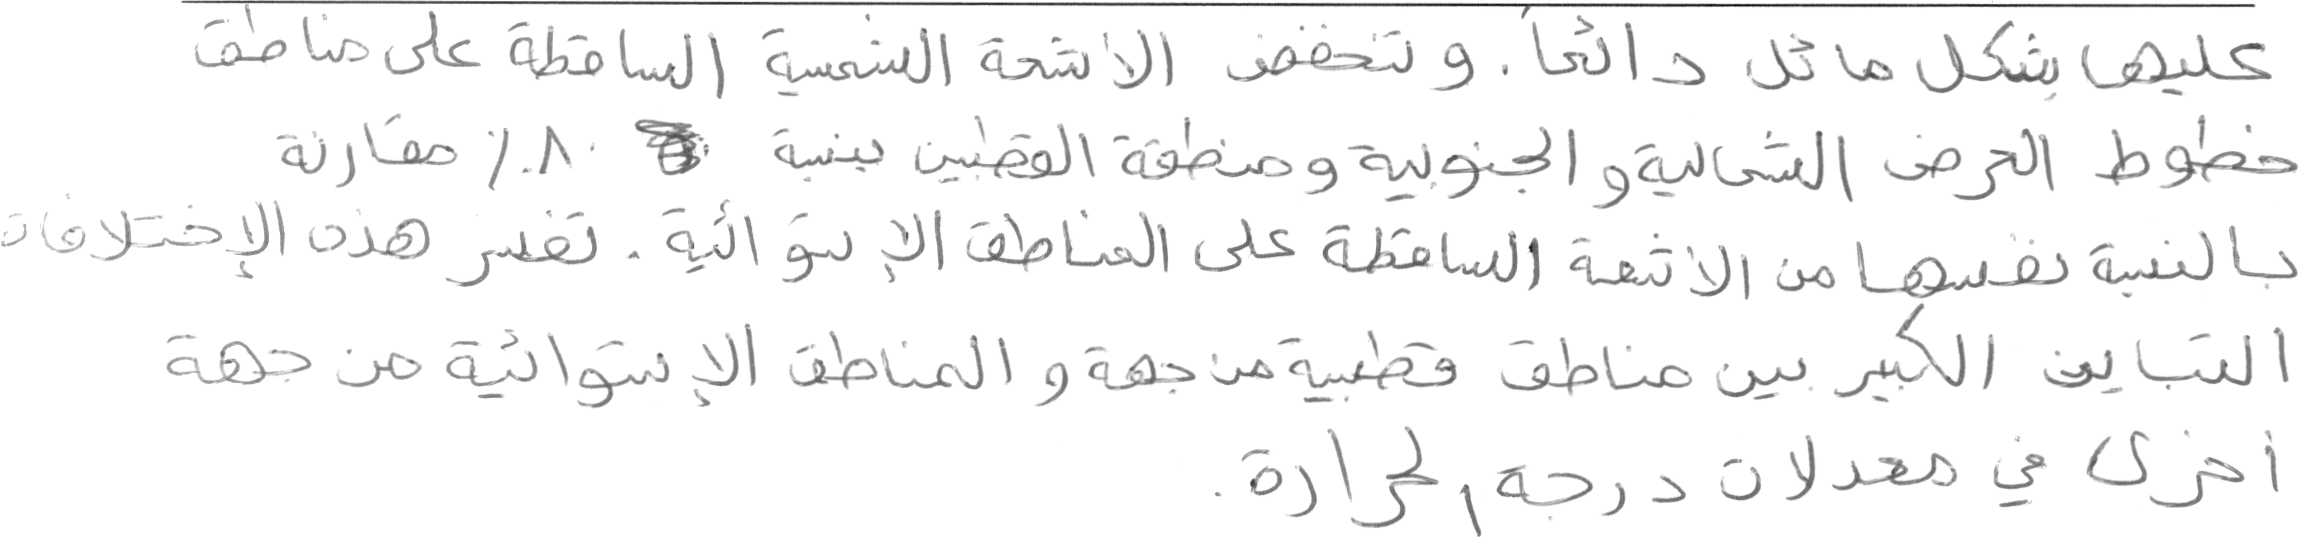 عليها بشكل مائل دائماً. وتنخفض الأشعة الشمسية الساقطة على مناطق
خطوط العرض الشمالية والجنوبية ومنطقة القطبين بنسبة ٨٠٪ مقارنة
بالنسبة نفسها من الأشعة الساقطة على المناطق الإستوائية. تفسر هذه الإختلافات
التباين الكبير بين مناطق قطبية من جهة والمناطق الإستوائية من جهة
أخرى في معدلات درجة الحرارة.